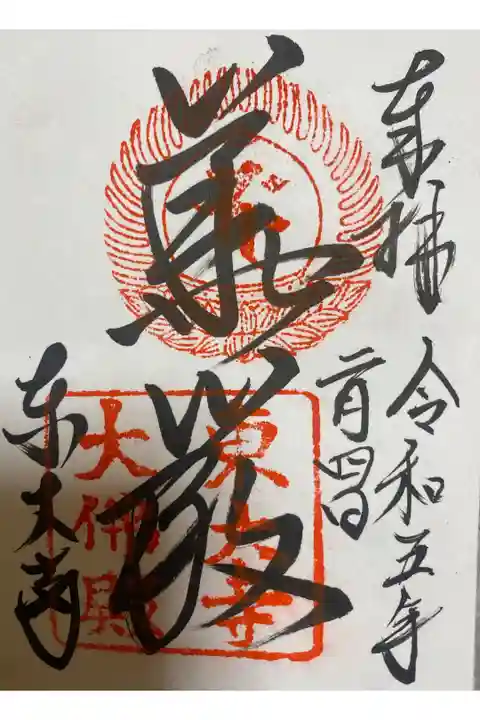 奉拝
令和五年
二月四日
華嚴
東大寺
東大寺
大佛殿